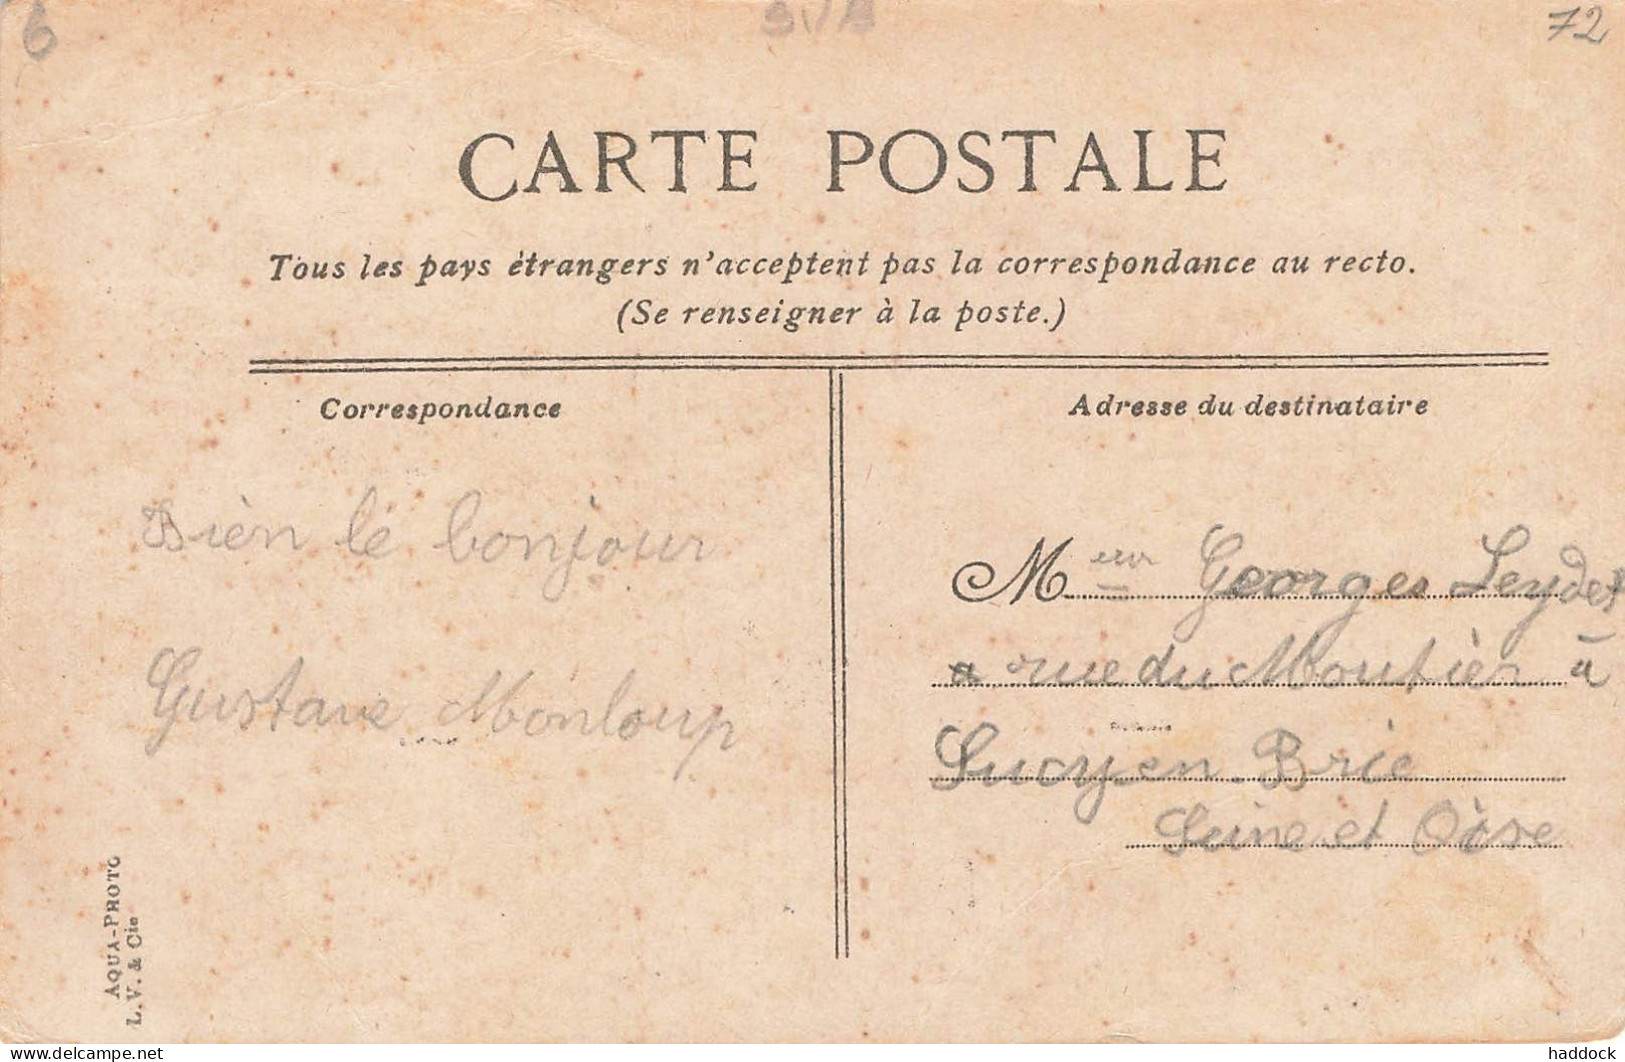 6
72
CARTE POSTALE
Tous les pays étrangers n'acceptent pas la correspondance au recto.
(Se renseigner à la poste.)
Correspondance
Adresse du destinataire
Bien le bonjour
Gustave Monloup
Meur Georges Leydet
rue du Moutier à
Sucy en Brie
Seine et Oise
AQUA-PHOTO
L. V. & Cie
www.delcampe.net
haddock